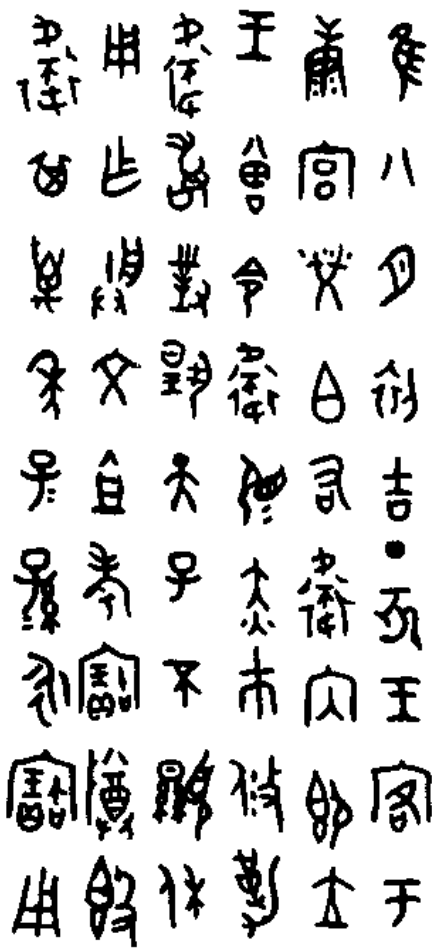 隹八月初吉丁亥王客于
康宮榮白右衛內即立
王曾令衛赤巿攸勒
衛敢對揚天子不顯休
用乍朕文且考寶尊𣪘
衛其萬年子=孫=永寶用